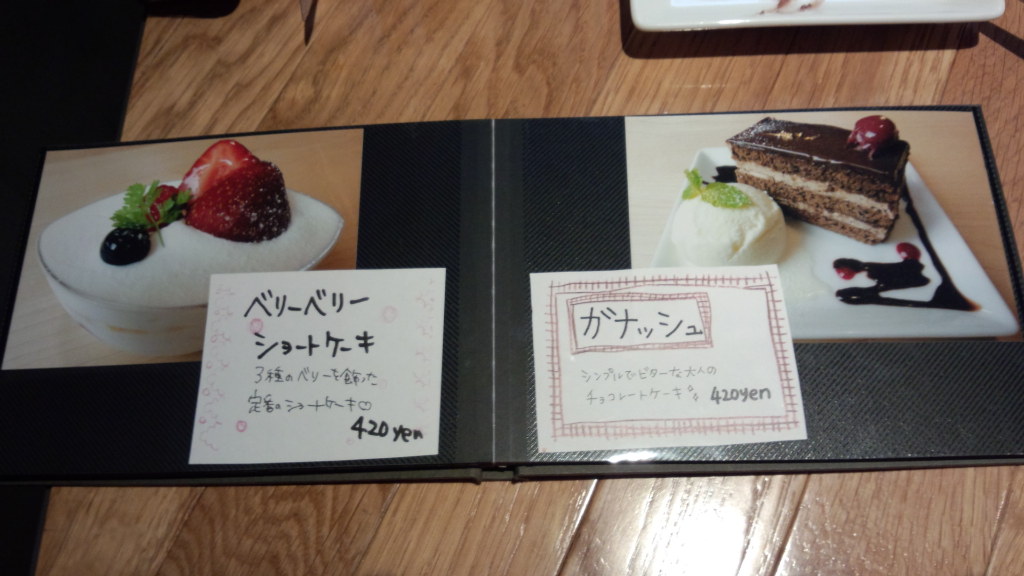 ベリーベリー
ショートケーキ
3種のベリーを飾った
定番のショートケーキ♡
420yen
ガナッシュ
シンプルでビターな大人の
チョコレートケーキ
420yen